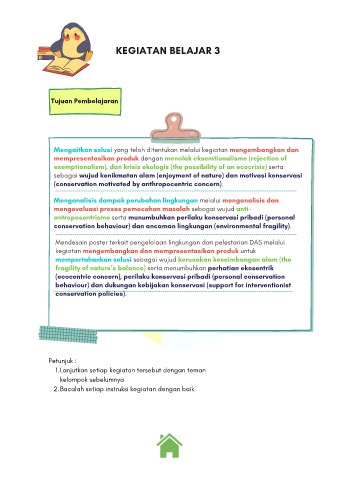 KEGIATAN BELAJAR 3
Tujuan Pembelajaran
Mengaitkan solusi yang telah ditentukan melalui kegiatan mengembangkan dan
mempresentasikan produk dengan menolak eksenstionalisme (rejection of
exemptionalism), dan krisis ekologis (the possibility of an ecocrisis) serta
sebagai wujud kenikmatan alam (enjoyment of nature) dan motivasi konservasi
(conservation motivated by anthropocentric concern).
Menganalisis dampak perubahan lingkungan melalui menganalisis dan
mengevaluasi proses pemecahan masalah sebagai wujud anti-
antroposentrisme serta menumbuhkan perilaku konservasi pribadi (personal
conservation behaviour) dan ancaman lingkungan (environmental fragility).
Mendesain poster terkait pengelolaan lingkungan dan pelestarian DAS melalui
kegiatan mengembangkan dan mempresentasikan produk untuk
mempertahankan solusi sebagai wujud kerusakan keseimbangan alam (the
fragility of nature's balance) serta menumbuhkan perhatian ekosentrik
(ecocentric concern), perilaku konservasi pribadi (personal conservation
behaviour) dan dukungan kebijakan konservasi (support for interventionist
conservation policies).
Petunjuk :
1.Lanjutkan setiap kegiatan tersebut dengan teman
kelompok sebelumnya
2.Bacalah setiap instruksi kegiatan dengan baik